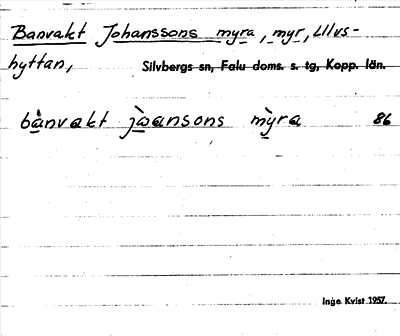 Banvakt Johanssons myra, myr, Ulvs-
hyttan, Silvbergs sn, Falu doms. s. tg, Kopp. län.
bànvakt jòansons mỳra 86
Inge Kvist 1957.